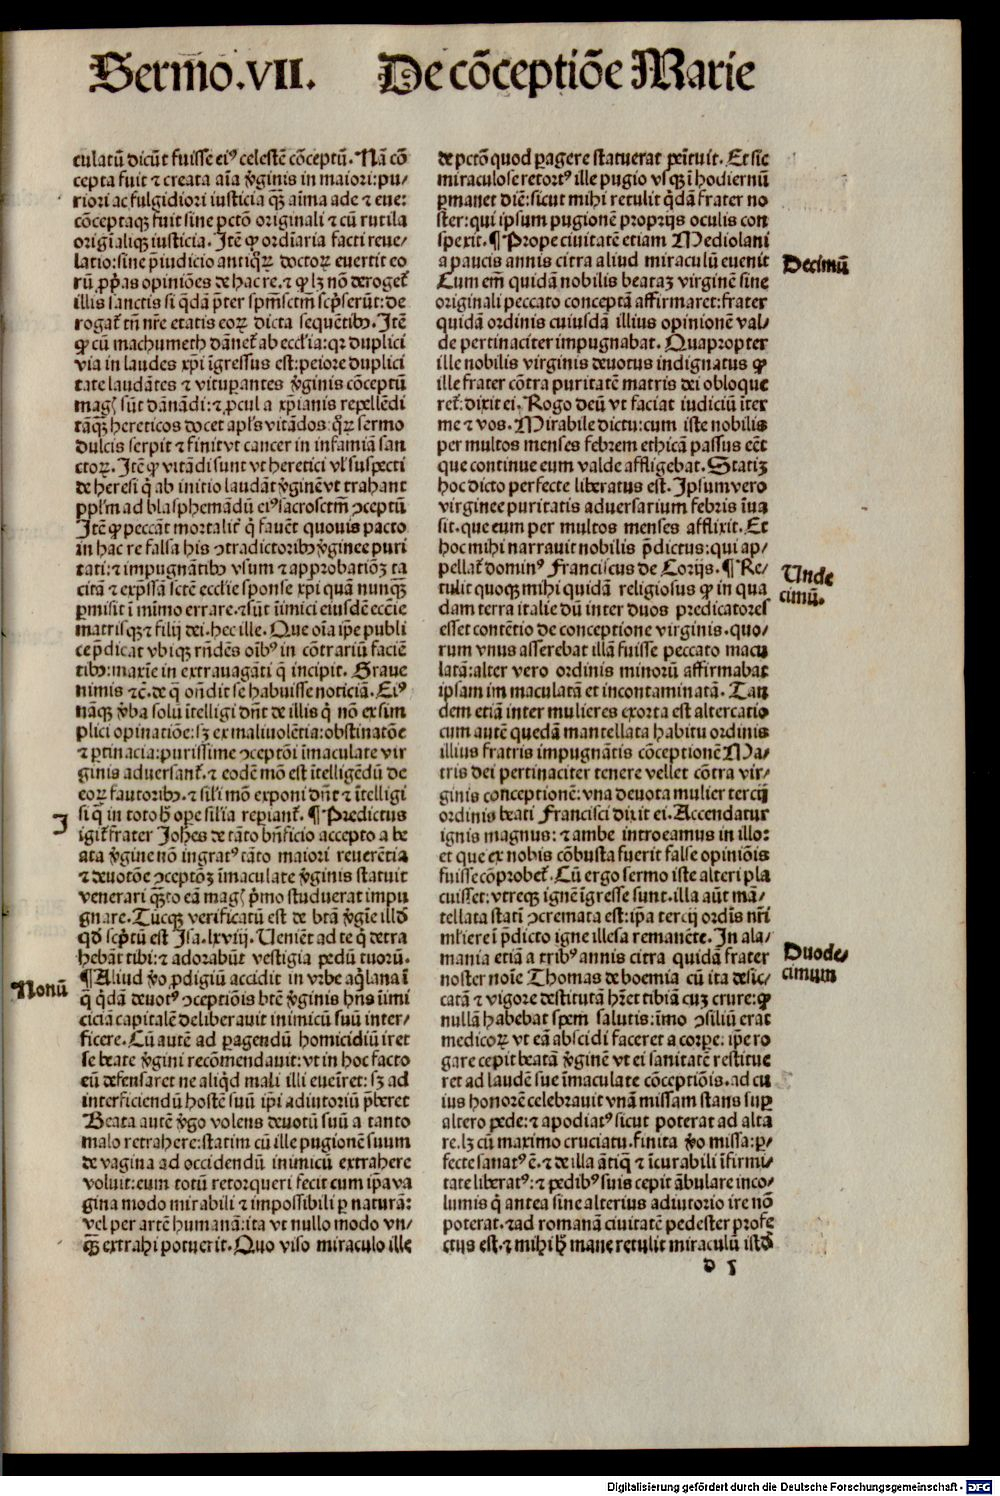 Sermo.VII. De cōceptiōe Marie
culatū dicūt fuisse eiꝰ celestē cōceptū. Nā cō
cepta fuit ⁊ creata aīa v̄ginis in maiori: pu/
riori ac fulgidiori iusticia qꝫ aīma ade ⁊ eue:
cōceptaqꝫ fuit sine pctō originali ⁊ cū rutila
origīaliqꝫ iusticia. Itē ꝙ ordīaria facti reue/
latio: sine p̄iudicio antiq̄ꝝ doctoꝝ euertit eo
rū ꝓp̄as opiniōes de hac re. ⁊ ꝙ lꝫ nō derogeƭ
illis sanctis si q̄dā p̄ter spm̄sctm̄ scp̄serūt: de
rogaƭ tn̄ nr̄e etatis eoꝝ dicta sequētibꝫ. Itē
ꝙ cū machumeth dāneƭ ab ecclīa: qꝛ duplici
via in laudes xp̄i īgressus est: peiore duplici
tate laudātes ⁊ vituꝑantes v̄ginis cōceptū
magꝭ sūt dānādi: ⁊ ꝓcul a xp̄ianis repellēdi
tāqꝫ hereticos docet apl̓s vitādos: q̄ꝝ sermo
dulcis serpit ⁊ finit vt cancer in infamiā san
ctoꝝ. Itē ꝙ vitādi sunt vt heretici vl̓ suspecti
de heresi q̄ ab initio laudāt v̄ginē vt trahant
ppl̓m ad blasphemādū eiꝰ sacrosctm̄ ↄceptū
Itē ꝙ peccāt mortaliƭ q̄ fauēt quouis pacto
in hac re falsa his ↄtradictoribꝫ v̄ginee puri
tati: ⁊ impugnātibꝫ vsum ⁊ approbatiōꝫ ta
citā ⁊ exp̄ssā sctē ecclīe sponse xp̄i quā nunqꝫ
ꝑmisit ī mīmo errare. ⁊ sūt īimici eiusdē ecc̄ie
matrisqꝫ ⁊ filij dei. hec ille. Que oīa ip̄e publi
ce p̄dicat vbiqꝫ rn̄dēs oībꝫ in cōtrariū faciē
tibꝫ: maxīe in extrauagāti q̄ incipit. Graue
nimis ⁊c̄. de q̄ on̄dit se habuisse noticiā. Eiꝰ
nāqꝫ v̄ba solū ītelligi dn̄t de illis q̄ nō ex sim
plici opinatiōe: sꝫ ex maliuolētia: obstinatōe
⁊ ꝑtinacia: purissime ↄceptōi īmaculate vir
ginis aduersanƭ. ⁊ eodē mō est ītelligēdū de
eoꝝ fautoribꝫ. ⁊ sil̓i mō exponi dn̄t ⁊ ītelligi
si q̄ in toto ħ oꝑe sil̓ia reꝑianƭ. ¶ Predictus
igiƭ frater Joh̄es de tāto bn̄ficio accepto a be
ata v̄gine nō ingratꝰ tāto maiori reuerētia
⁊ deuotōe ↄceptōꝫ īmaculate v̄ginis statuit
venerari qꝫto eā magꝭ p̄mo studuerat impu
gnare. Tūcqꝫ verificatū est de btā v̄gīe illḋ
qḋ scp̄tū est Isa. lxviij. Veniēt ad te q̄ detra
hebāt tibi: ⁊ adorabūt vestigia pedū tuorū.
¶ Aliud v̄o ꝓdigiū accidit in vrbe aq̄lana ī
q̄ q̄dā deuotꝰ ↄceptiōis btē v̄ginis hn̄s īimi
ciciā capitalē deliberauit inimicū suū inter/
ficere. Cū autē ad ꝑagendū homicidiū iret
se beate v̄gini recōmendauit: vt in hoc facto
eū defensaret ne aliq̄d mali illi euēiret: sꝫ ad
interficiendū hostē suū ip̄i adiutoriū p̄beret
Beata autē v̄go volens deuotū suū a tanto
malo retrahere: statim cū ille pugionē suum
de vagina ad occidendū inimicū extrahere
voluit: eum totū retorqueri fecit cum ip̄a va
gina modo mirabili ⁊ impossibili ꝑ naturā:
vel per artē humanā: ita vt nullo modo vn/
qꝫ extrahi potuerit. Quo viso miraculo ille
J
Nonū
de pctō quod ꝑagere statuerat peītuit. Et sic
miraculose retortꝰ ille pugio vsqꝫ ī hodiernū
ꝑmanet diē: sicut mihi retulit q̄dā frater no
ster: qui ipsum pugionē proprijs oculis con
spexit. ¶ Prope ciuitatē etiam Mediolani
a paucis annis citra aliud miraculū euenit
Cum em̄ quidā nobilis beataꝫ virginē sine
originali peccato conceptā affirmaret: frater
quidā ordinis cuiusdā illius opinionē val/
de pertinaciter impugnabat. Quapropter
ille nobilis virginis deuotus indignatus ꝙ
ille frater cōtra puritatē matris dei obloque
reƭ: dixit ei. Rogo deū vt faciat iudiciū īter
me ⁊ vos. Mirabile dictu: cum iste nobilis
per multos menses febrem ethicā passus eēt
que continue eum valde affligebat. Statiꝫ
hoc dicto perfecte liberatus est. Ipsum vero
virginee puritatis aduersarium febris īua
sit. que eum per multos menses afflixit. Et
hoc mihi narrauit nobilis p̄dictus: qui ap/
pellaƭ dominꝰ Franciscus de Corijs. ¶ Re/
tulit quoqꝫ mihi quidā religiosus ꝙ in qua
dam terra italie dū inter duos predicatores
esset contētio de conceptione virginis. quo/
rum vnus asserebat illā fuisse peccato macu
latā: alter vero ordinis minorū affirmabat
ipsam im maculatā et incontaminatā. Tan
dem etiā inter mulieres exorta est altercatio
cum autē quedā mantellata habitu ordinis
illius fratris impugnātis cōceptionē Ma/
tris dei pertinaciter tenere vellet cōtra vir/
ginis conceptionē: vna deuota mulier tercij
ordinis beati Francisci dixit ei. Accendatur
ignis magnus: ⁊ ambe introeamus in illo:
et que ex nobis cōbusta fuerit false opiniōis
fuisse cōprobeƭ. Cū ergo sermo iste alteri pla
cuisset: vtreqꝫ ignē īgresse sunt. illa aūt mā/
tellata statī ↄcremata est: ip̄a tercij ordīs nr̄i
ml̓iere ī p̄dicto igne illesa remanēte. In ala/
mania etiā a tribꝰ annis citra quidā frater
noster noīe Thomas de boemia cū ita desic/
catā ⁊ vigore destitutā hr̄et tibiā cuꝫ crure: ꝙ
nullā habebat spem salutis: īmo ↄsiliū erat
medicoꝝ vt eā abscidi faceret a corꝑe: ip̄e ro
gare cepit beatā v̄ginē vt ei sanitatē restitue
ret ad laudē sue īmaculate cōceptiōis. ad cu
ius honorē celebrauit vnā missam stans suꝑ
altero pede: ⁊ apodiatꝰ sicut poterat ad alta
re. lꝫ cū maximo cruciatu. finita v̄o missa: ꝑ/
fecte sanatꝰ ē. ⁊ de illa ātiq̄ ⁊ īcurabili īfirmi/
tate liberatꝰ: ⁊ pedibꝰ suis cepit ābulare inco/
lumis q̄ antea sine alterius adiutorio ire nō
poterat. ⁊ ad romanā ciuitatē pedester profe
ctus est. ⁊ mihi ħ mane retulit miraculū istḋ
Decimū
Unde
cimū.
Duode/
cimum
d j
Digitalisierung gefördert durch die Deutsche Forschungsgemeinschaft - DFG